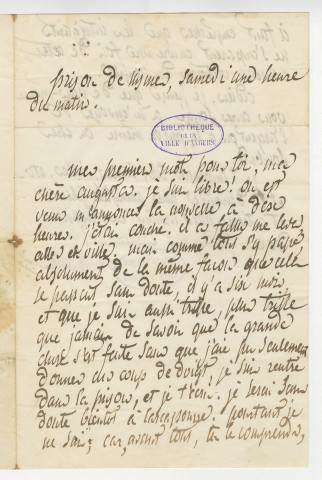 prison de nismes, samedi une heure
du matin.
BIBLIOTHÈQUE
DE LA
VILLE D'ANGERS
mon premier mot pour toi, ma
chère augusta. je suis libre! on est
venu m'annoncer la nouvelle à dix
heures, j'étais couché, il a fallu me lever
aller en ville, mais comme tout s'y passe
absolument de la même façon que cela
se passait, sans doute, il y a six mois,
et que je suis aussi triste, plus triste
que jamais de savoir que la grande
chose s'est faite sans que j'aie pu seulement
donner un coup de doigt, je suis rentré
dans la prison, et je t'écris. je serai sans
doute bientôt à carcassonne. pourtant je
ne sais; car, avant tout, tu le comprends,